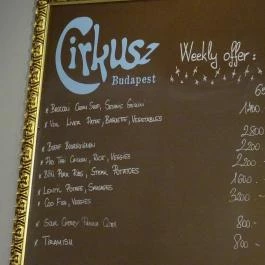 Cirkusz
Budapest
Weekly offer:
Broccoli Cream Soup, Sesame
Veal Liver Pate, Baguette, Vegetables
Beef Bourguignon
Pad Thai Chicken, Rice, Veggies
BBQ Pork Ribs, Steak Potatoes
Potato, Sausages
Cod Fish, Veggies
Sour Cherry Panna Cotta
Tiramisu
2200
2200
1600
3200
800
800